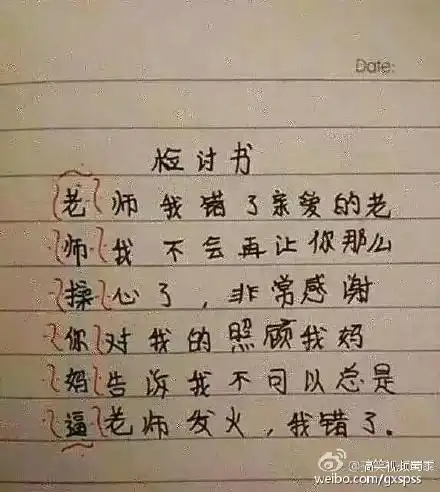 Date:
检讨书
老师我错了亲爱的老
师我不会再让你那么
操心了，非常感谢
你对我的照顾我妈
妈告诉我不可以总是
逼老师发火，我错了。
搞笑视频蜀黍
weibo.com/gxspss